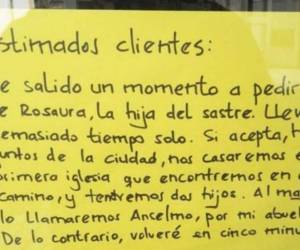 stimados clientes:
e salido un momento a pedir
e Rosaura, la hija del sastre. Llev
emasiado tiempo solo. Si acepta, h
untos de la ciudad, nos casaremos e
primera iglesia que encontremos en e
camino, y tendremos dos hijos. Al ma
lo llamaremos Anselmo, por mi abue
De lo contrario, volveré en cinco minu